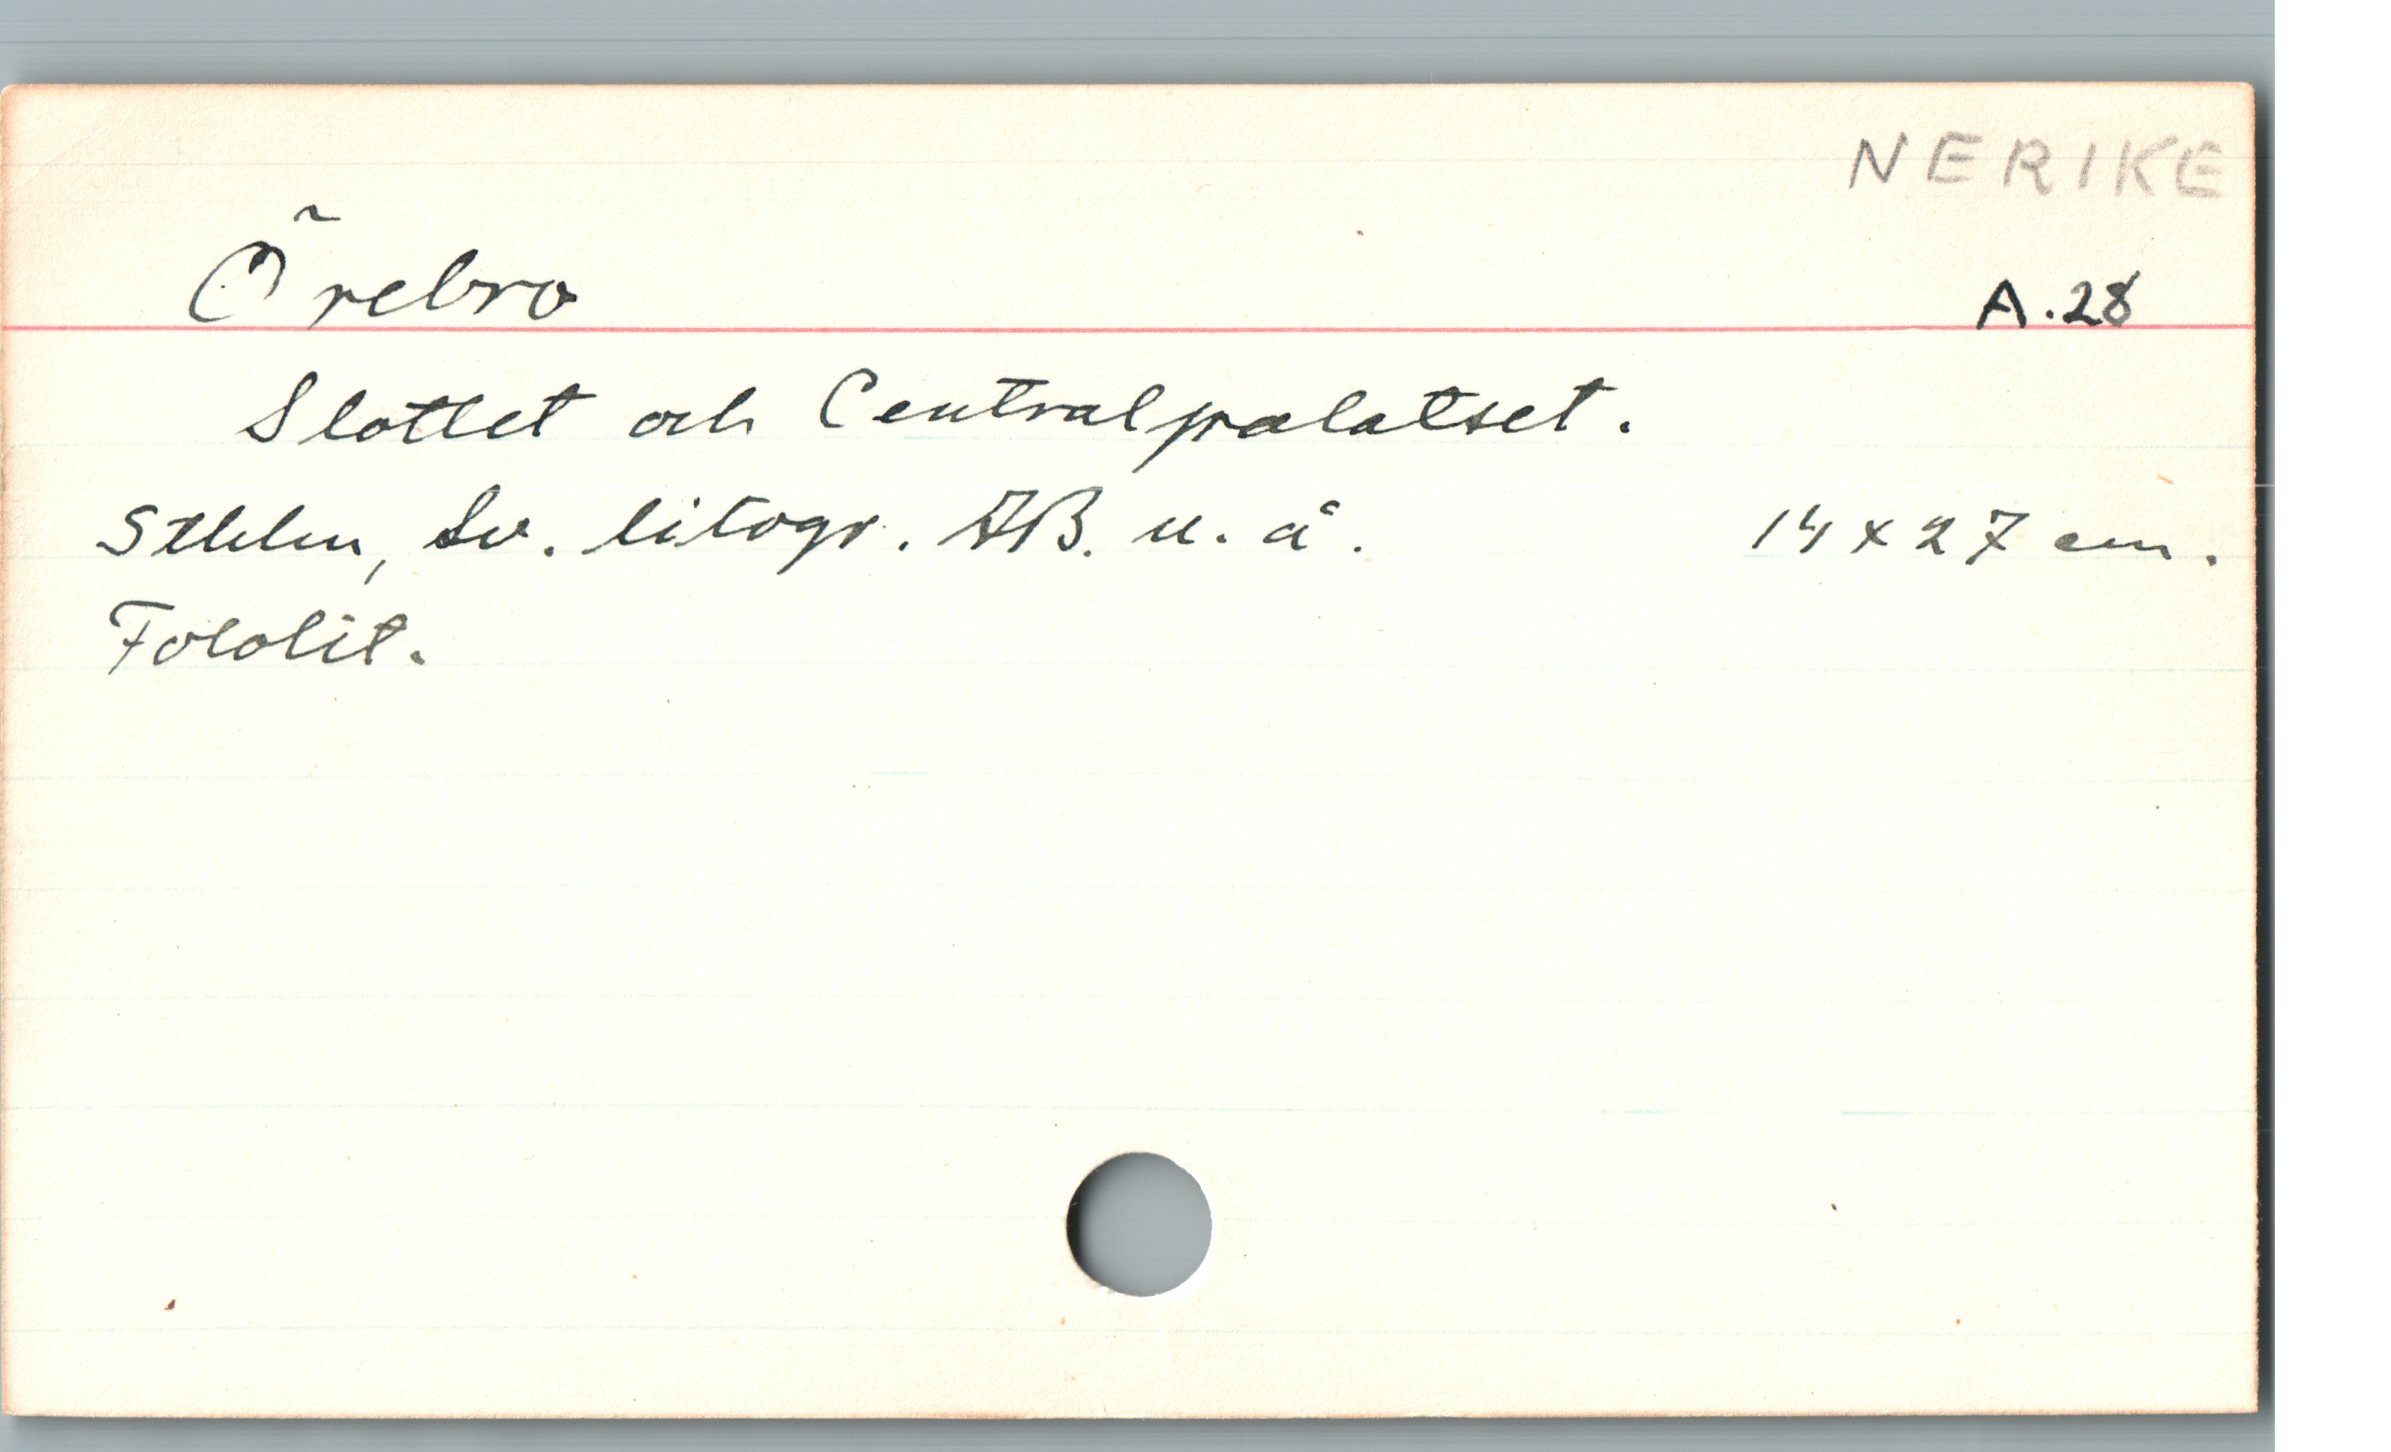 NERIKE
Örebro A.28
Slottet och Centralpalatset.
Sthlm, Sv. litogr. AB. u. å. 14 x 27 cm.
Fotolit.